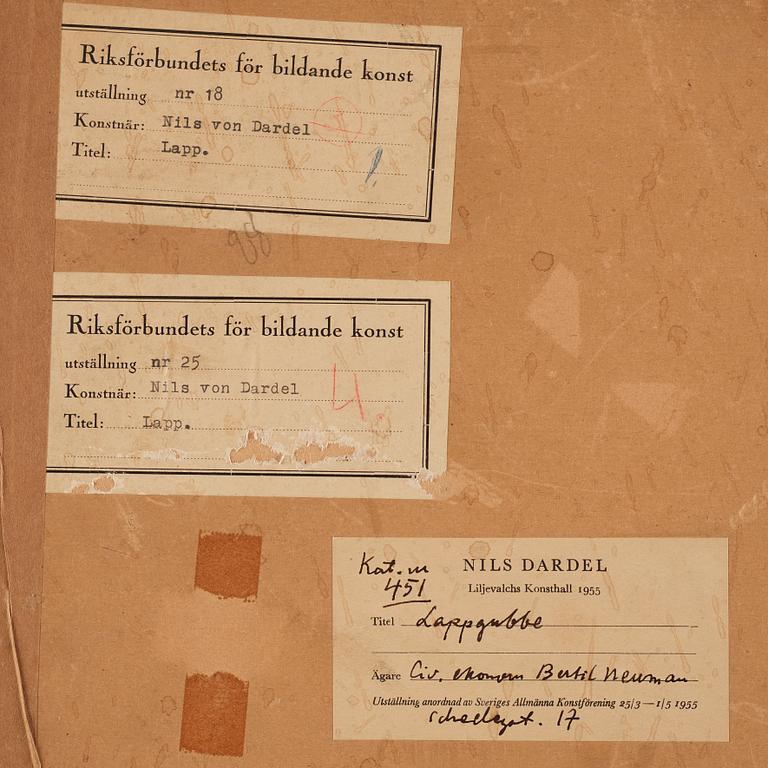 Riksförbundets för bildande konst
utställning nr 18
Konstnär: Nils von Dardel
Titel: Lapp.
Riksförbundets för bildande konst
utställning nr 25
Konstnär: Nils von Dardel
4
Titel: Lapp.
Kat. nr NILS DARDEL
451 Liljevalchs Konsthall 1955
Titel Lappgubbe
Ägare Civ. ekonom Bertil Neuman
Utställning anordnad av Sveriges Allmänna Konstförening 25/3—1/5 1955
17